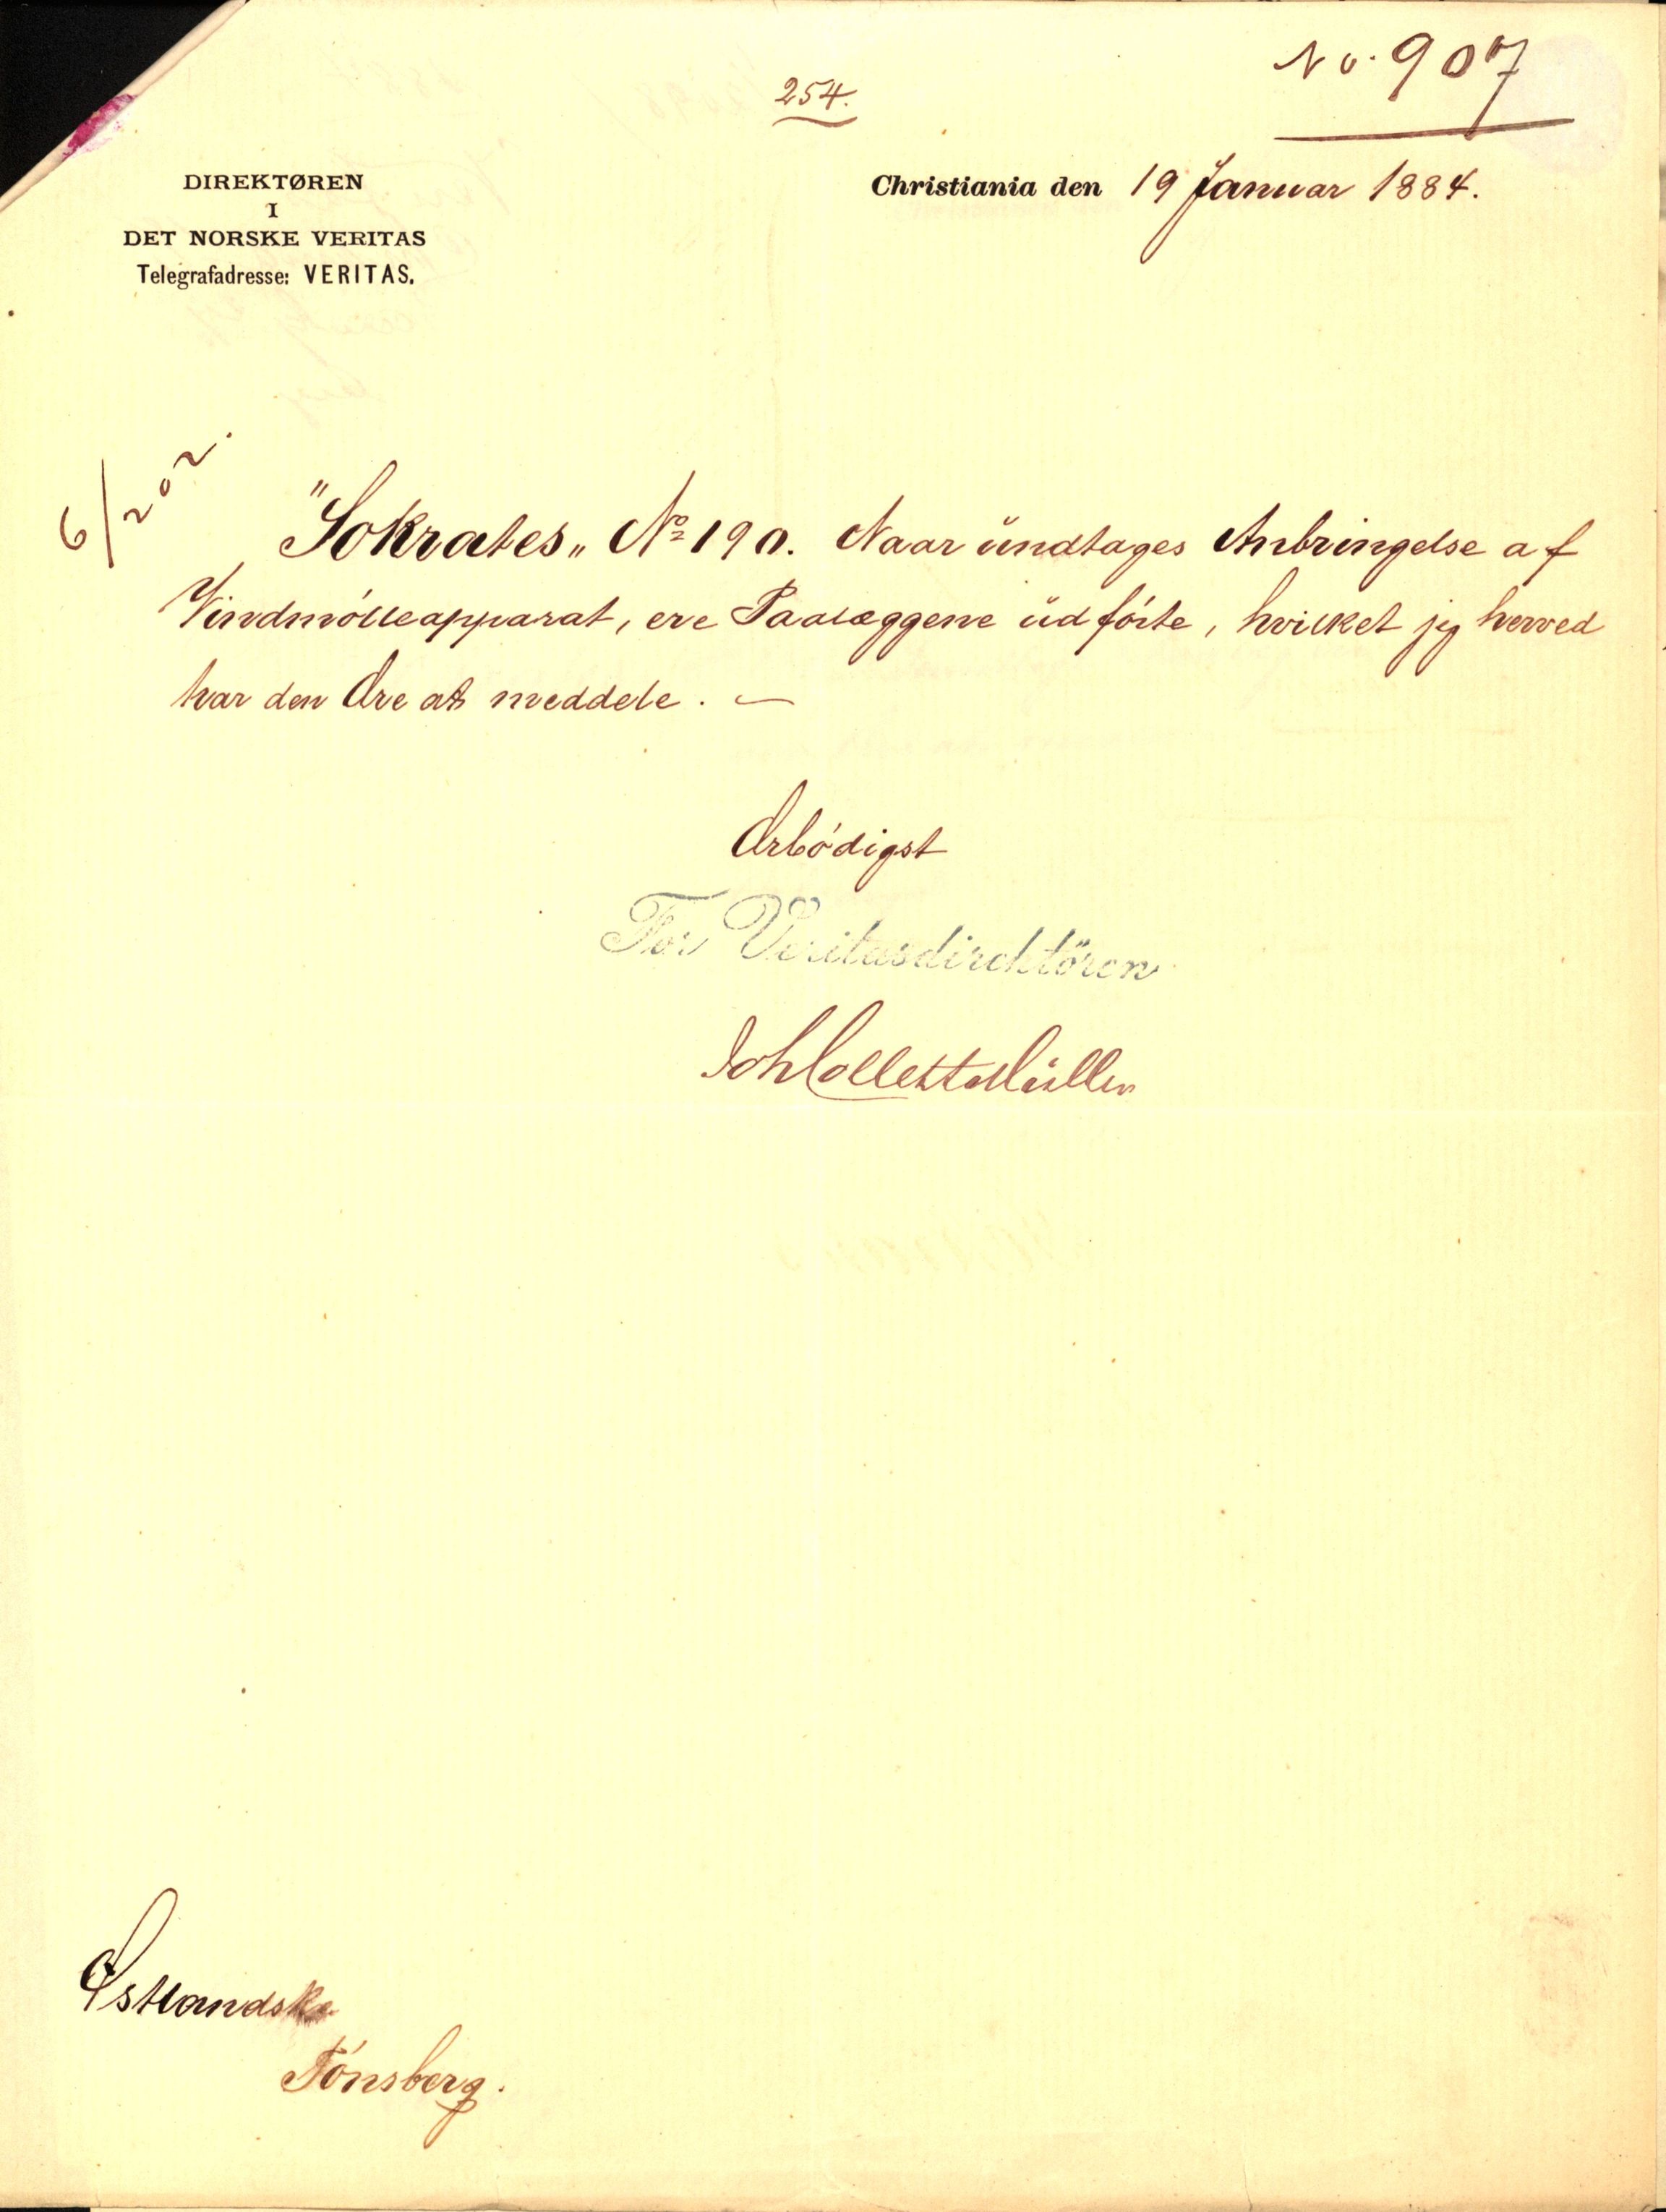 No. 907
254.
DIREKTØREN
I
DET NORSKE VERITAS
Telegrafadresse: VERITAS.
Christiania den 19 Januar 1884.
6/202.
"Sokrates„ No 190. Naar undtages Anbringelse af
Vindmölleapparat, ere Paalæggene udförte, hvilket jeg herved
har den Ære at meddele. —
Ærbödigst
For Veritasdirektören
Østlandske
Tönsberg.